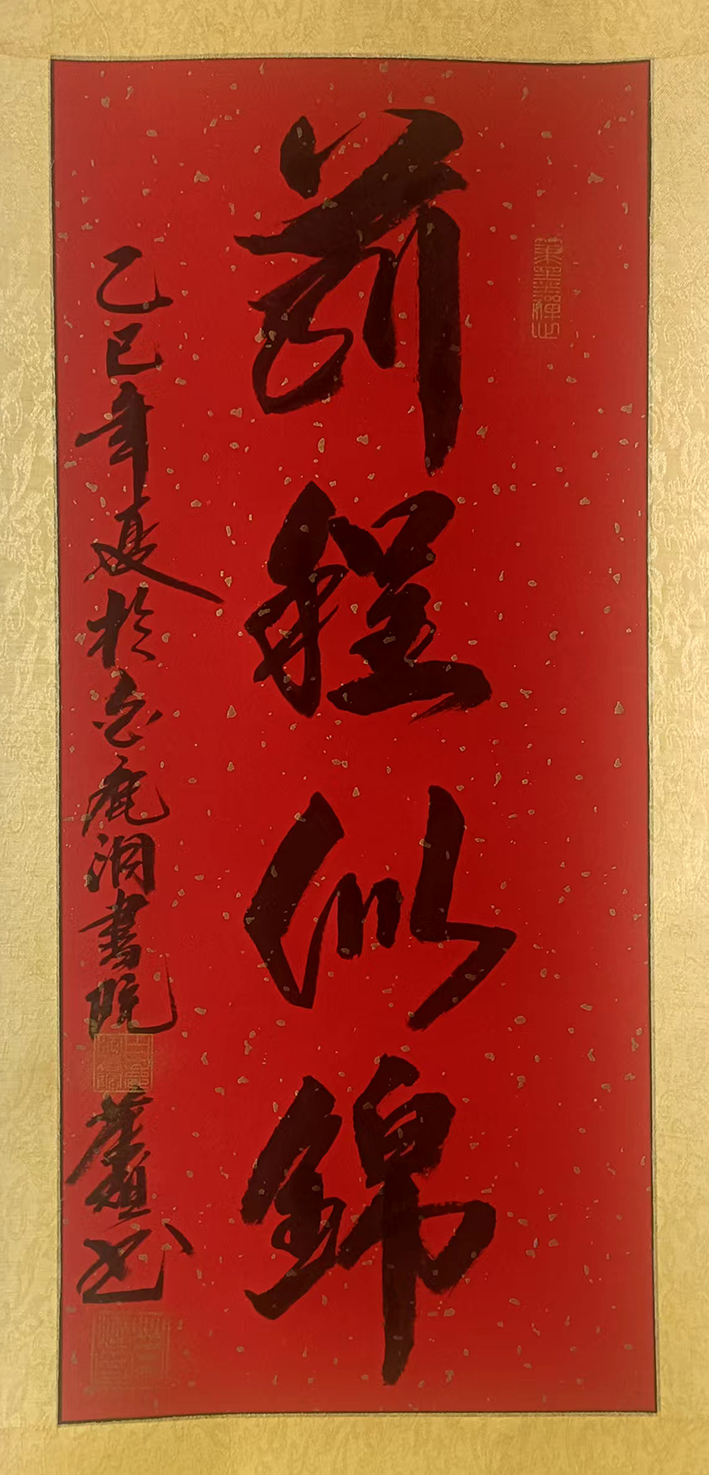 前程似錦
乙巳年夏於白鹿洞書院
書